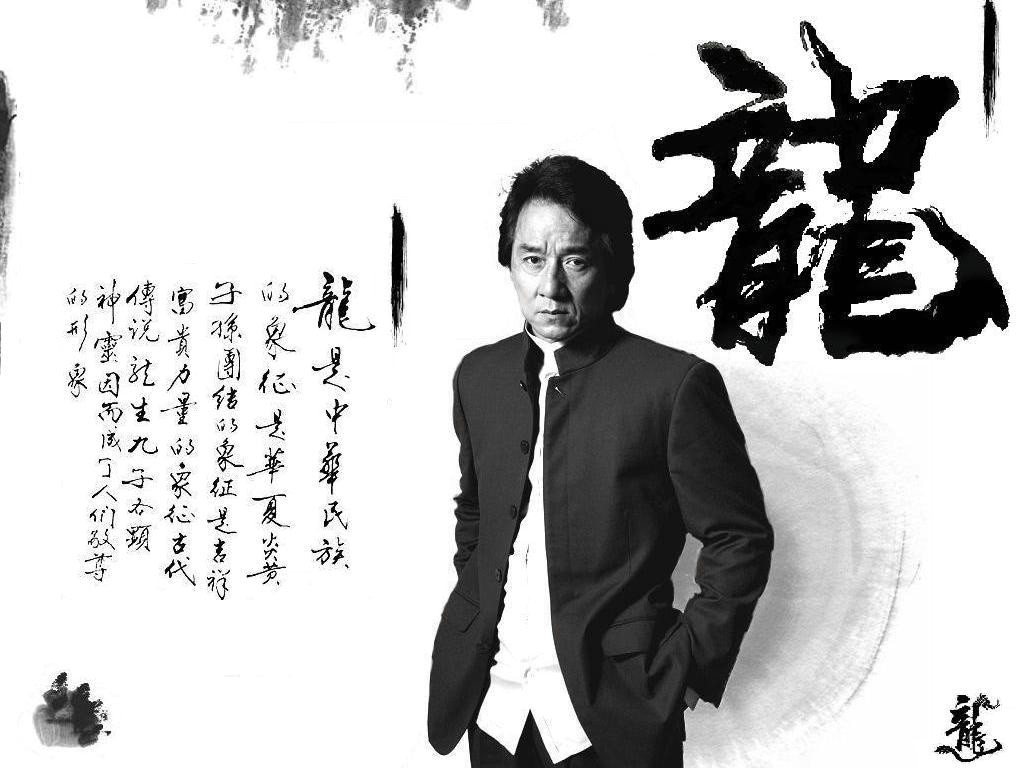 龍
龍是中華民族
的象征是華夏炎黄
子孫團結的象征是吉祥
富貴力量的象征古代
傳说龙生九子各顯
神靈因而成了人们敬尊
的形象
龍